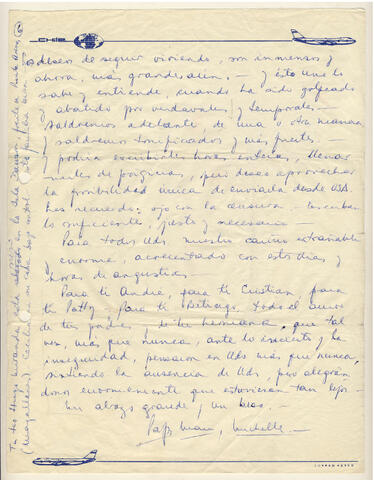 deseos de seguir viviendo, son inmensos y
ahora, más grandes aún. — y esto uno lo
sabe y entiende, cuando ha sido golpeado
y abatido por y temporales —
Saldremos adelante, de una u otra manera
y saldremos tonificados y más fuertes.
y podría escribirles horas enteras, llenar
miles de páginas, pero deseo aprovechar
la posibilidad única de enviarla desde USA.
Les recuerdo: ojo con la censura — escriban
lo suficiente, justo y necesario —
Para todos Uds. nuestro cariño entrañable
enorme, acrecentado con estos días y
horas de angustias —
Para ti André, para ti Cristian para
ti Patty, para ti todo el amor
de tus padres, de tu hermana, que tal
vez, más que nunca, ante lo incierto y la
inseguridad, pensamos en Uds más que nunca,
sintiendo la ausencia de Uds, pero alegrán
donos enormemente que estuvieran tan lejos —
Un abrazo grande, un beso.
Papy Mamy, Michelle —
Tu tío Hugo Miranda está alojado en la Isla Dawson frente a Punta Arenas
(Magallanes) Cecilia